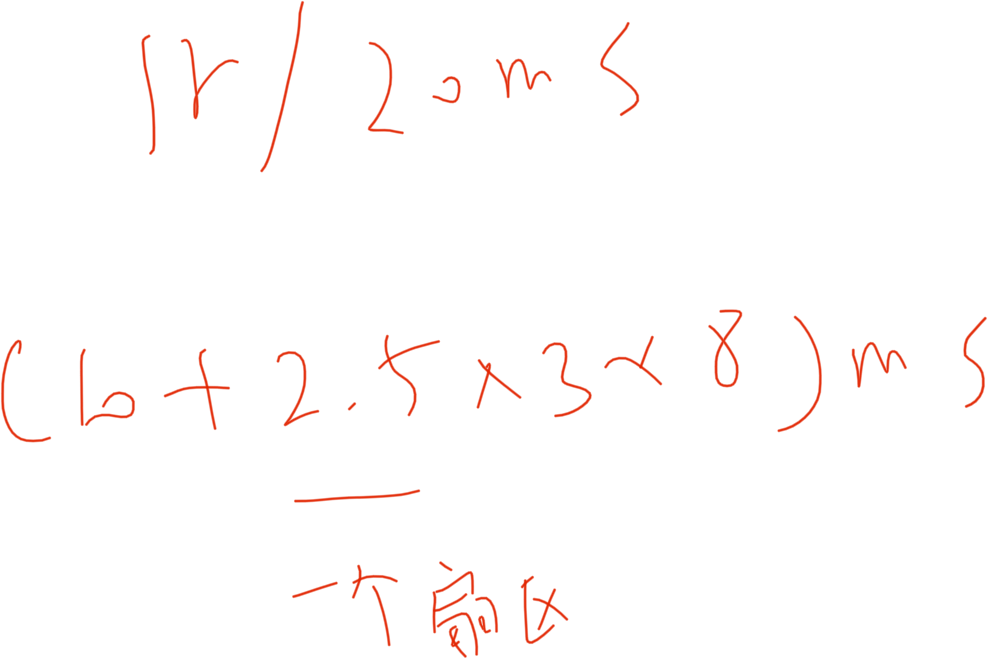 1r/20ms
(10+2.5×3×8)ms
一个扇区